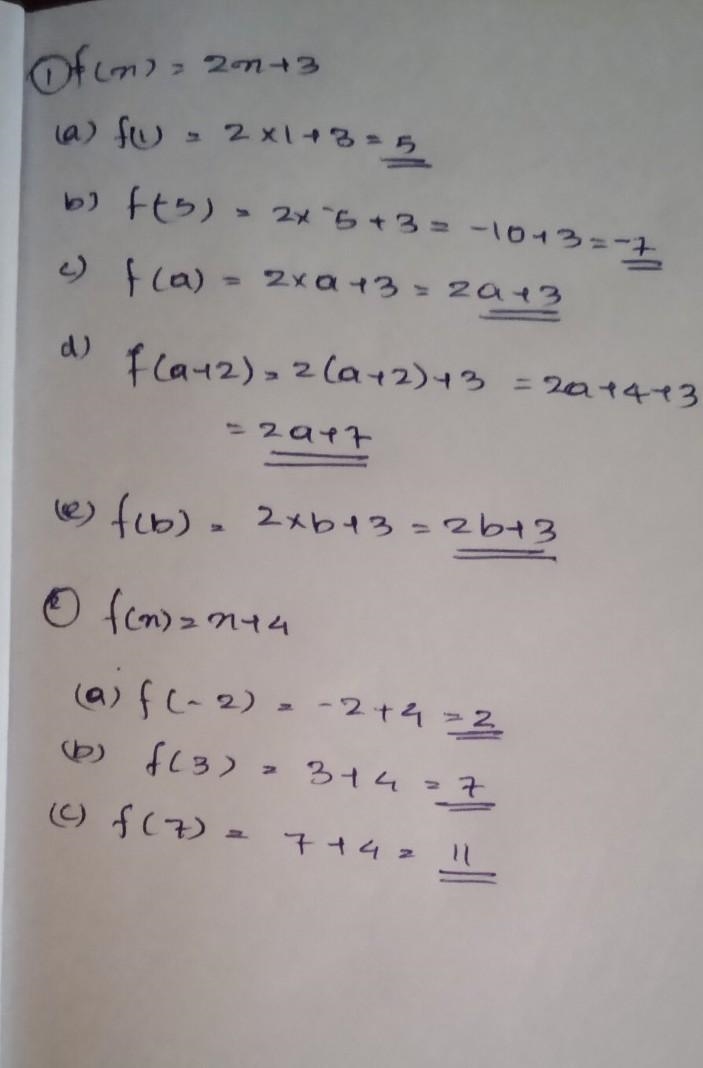 ① f(n) = 2n+3
(a) f(1) = 2×1+3 = 5
b) f(-5) = 2×-5+3 = -10+3 = -7
c) f(a) = 2×a+3 = 2a+3
d) f(a+2) = 2(a+2)+3 = 2a+4+3
= 2a+7
(e) f(b) = 2×b+3 = 2b+3
② f(n) = n+4
(a) f(-2) = -2+4 = 2
(b) f(3) = 3+4 = 7
(c) f(7) = 7+4 = 11